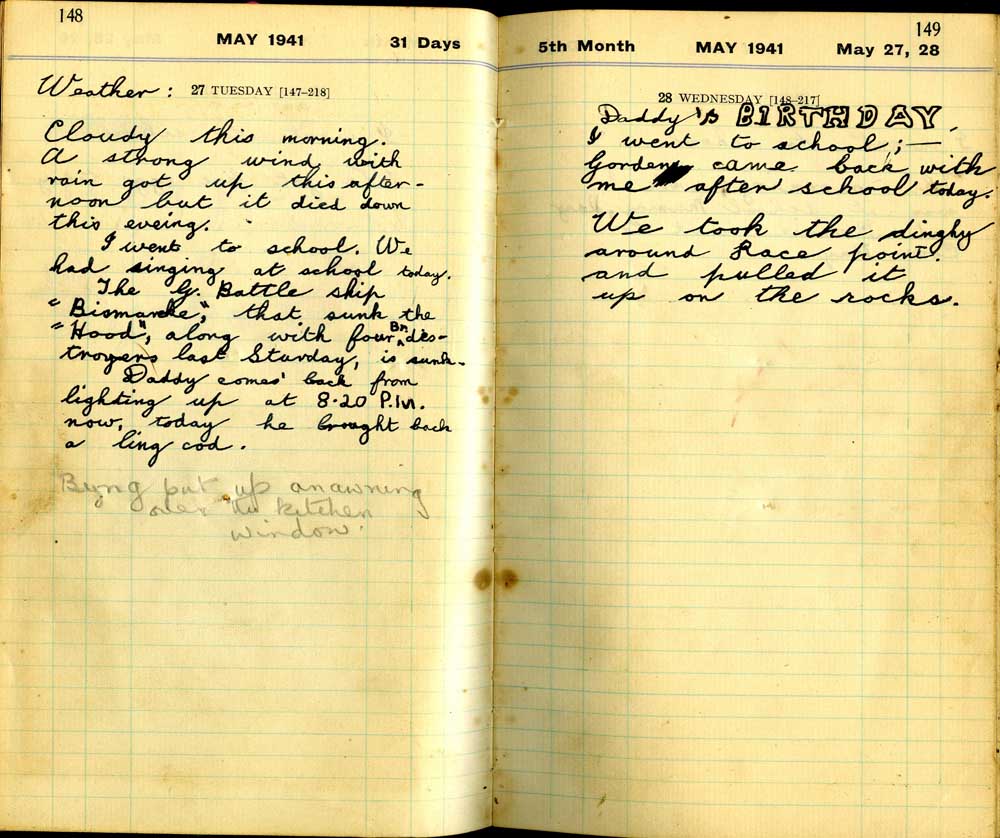 148
MAY 1941 31 Days
Weather : 27 TUESDAY [147–218]
Cloudy this morning.
A strong wind with
rain got up this after-
noon but it died down
this eveing.
I went to school. We
had singing at school today.
The G. Battle ship
"Bismarke", that sunk the
"Hood", along with four Br. des-
troyers last Sturday, is sunk.
Daddy comes back from
lighting up at 8.20 P.M.
now, today he brought back
a ling cod.
Byng put up an awning
over the kitchen
window.
149
5th Month MAY 1941 May 27, 28
28 WEDNESDAY [148–217]
Daddy's BIRTHDAY.
I went to school ;—
Gordon came back with
me after school today.
We took the dinghy
around Race point.
and pulled it
up on the rocks.